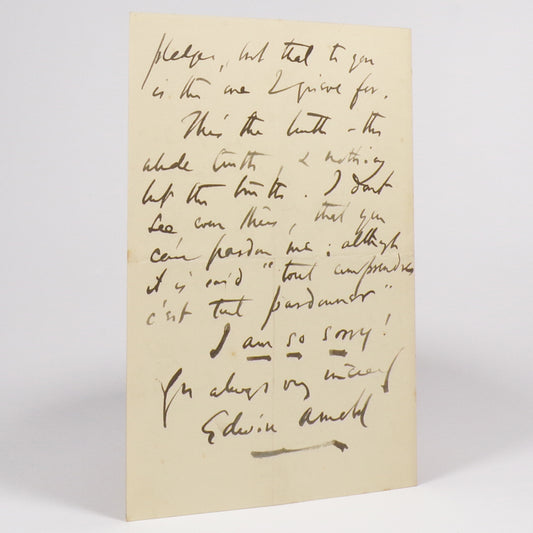 pledges, but that to you
is the one I grieve for.
This the truth - the
whole truth, & nothing
but the truth. I don't
see even then, that you
can pardon me: although
it is said "tout comprendre
c'est tout pardonner"
I am so sorry!
Yrs always very sincerely
Edwin Arnold